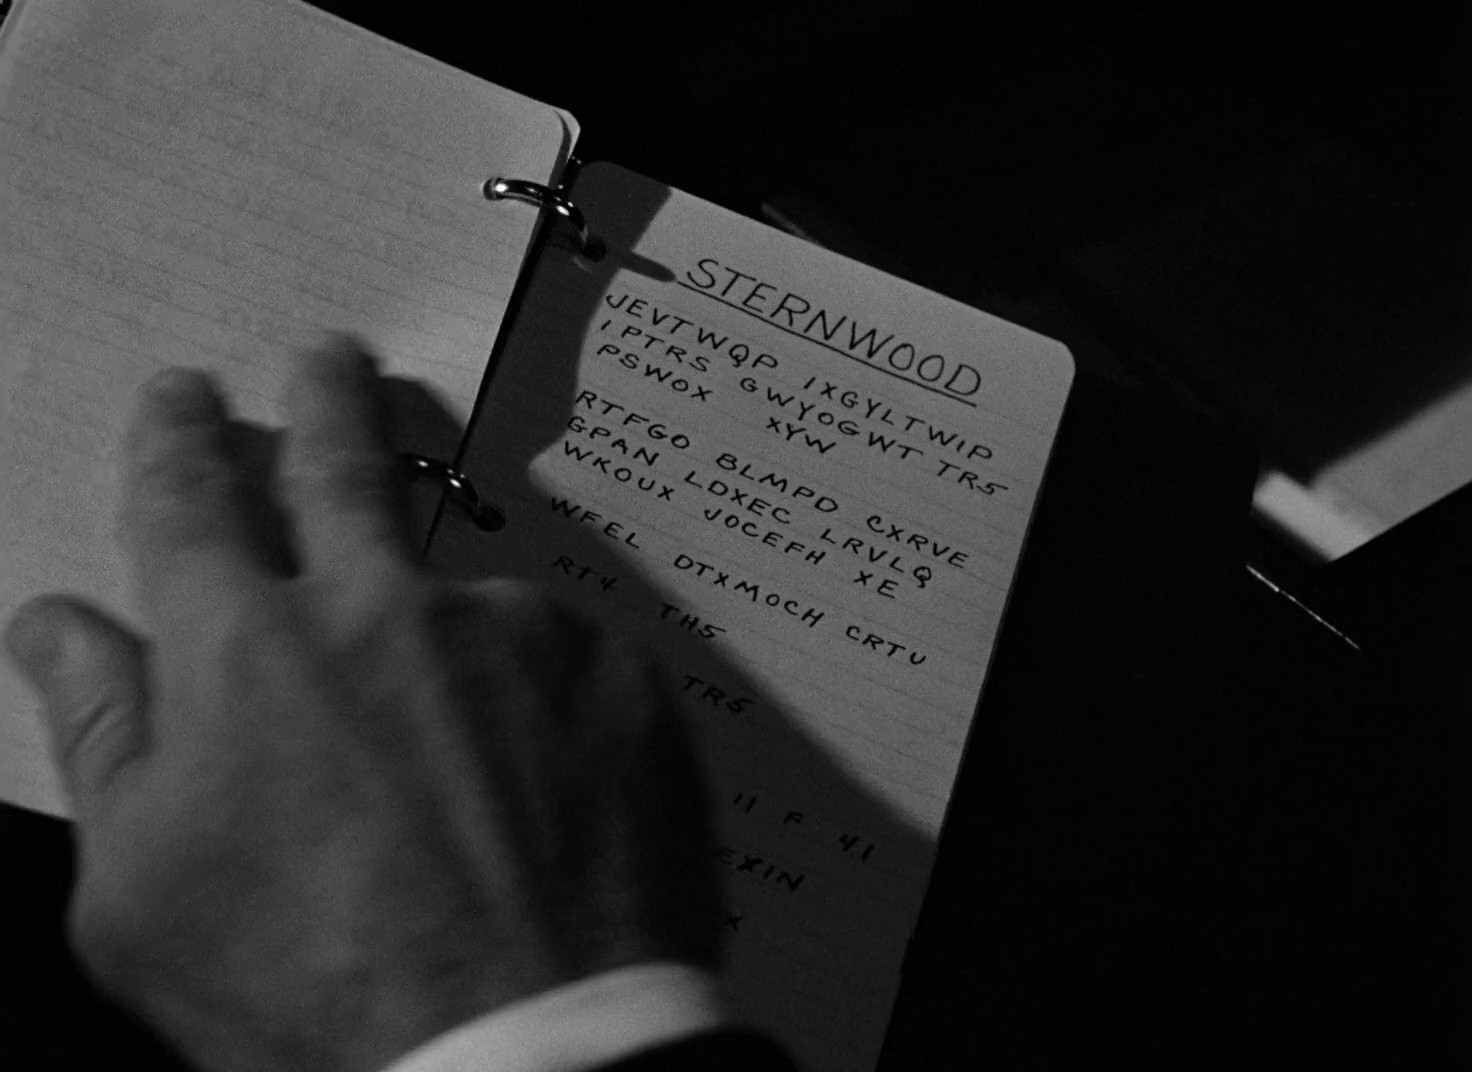 STERNWOOD
JEVTWQP IXGYLTWIP
IPTRS GWYOGWT TR5
PSWOX XYW
RTFGO BLMPD CXRVE
GPAN LDXEC LRVLQ
WKOUX JOCEFH XE
WFEL DTXMOCH CRTU
RT4 TH5
TR5
11 F 41
EXIN
X